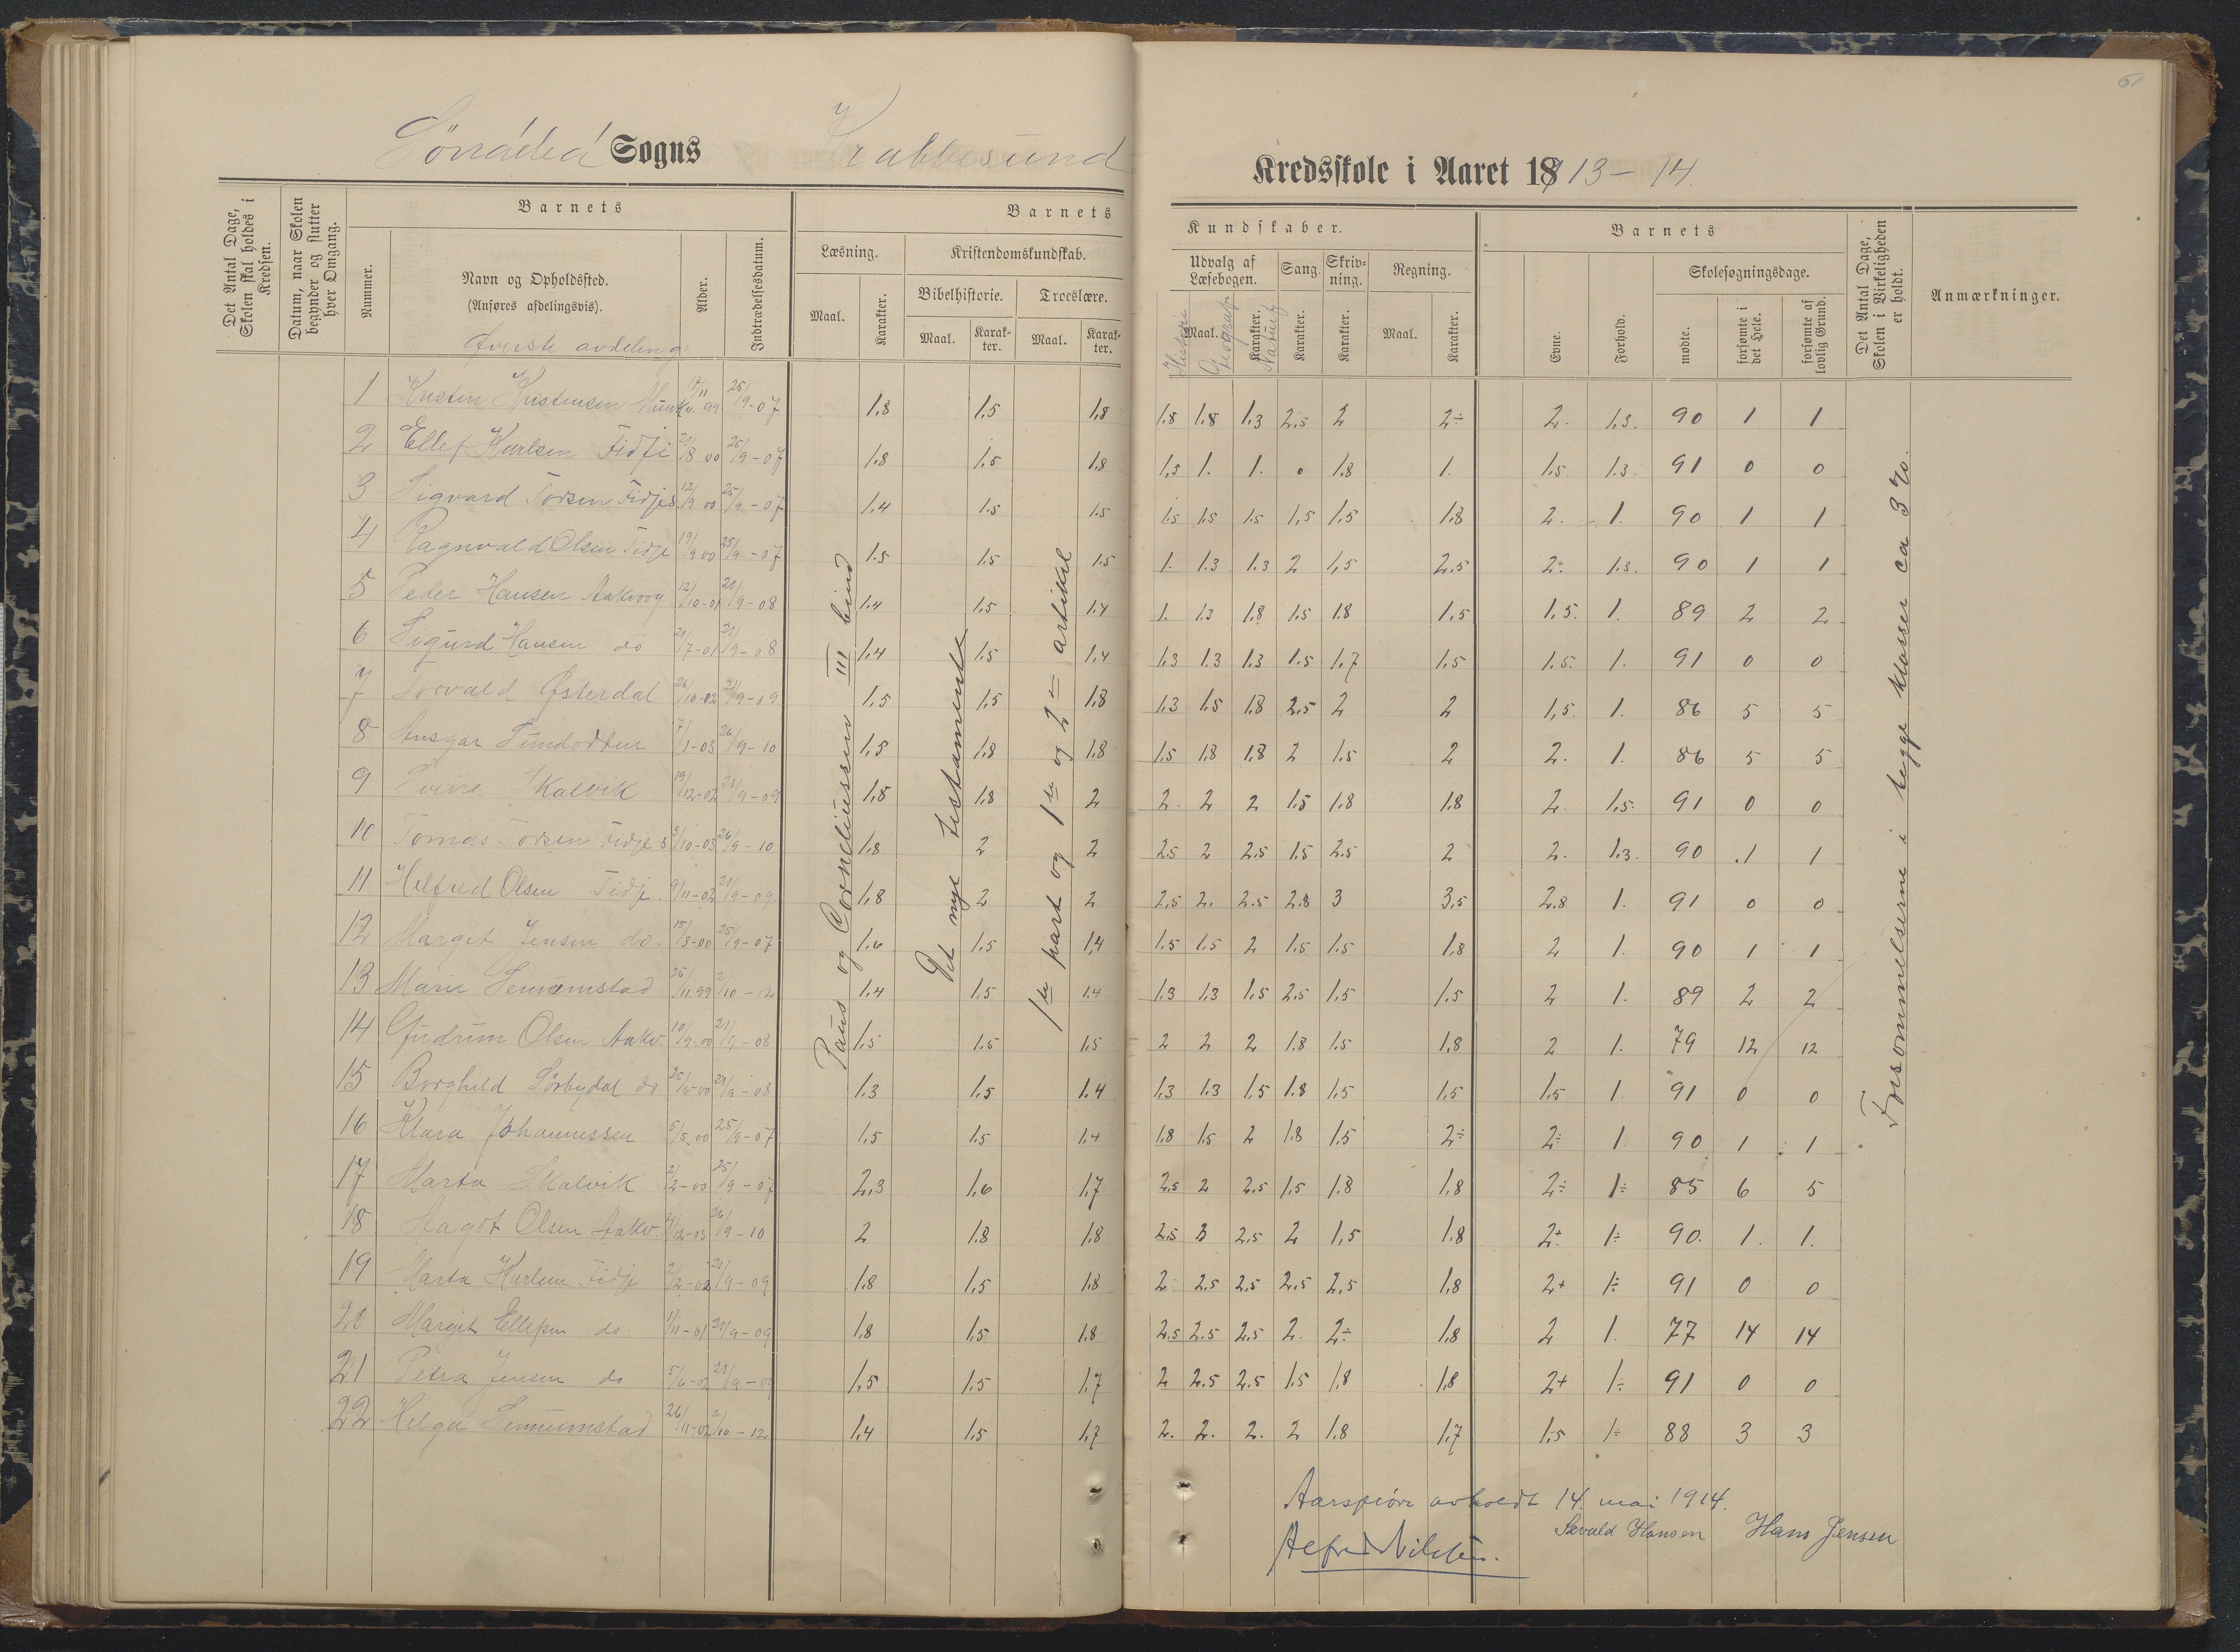 61
Søndeled Sogns Krabbesund Kredsskole i Aaret 1913-14.
Det Antal Dage, Skolen skal holdes i Kredsen.
Datum, naar Skolen begynder og slutter hver Omgang.
Barnets
Nummer.
Navn og Opholdssted.
(Anføres afdelingsvis).
Øverste avdeling
Alder.
Indtrædelsesdatum.
Barnets Kundskaber.
Læsning.
Maal.
Karakter.
Kristendomskundskab.
Bibelhistorie.
Maal.
Karakter.
Troeslære.
Maal.
Karakter.
Udvalg af Læsebogen.
Maal.
Karakter.
Historie
Geografi
Naturf
Sang.
Karakter.
Skrivning.
Karakter.
Regning.
Maal.
Karakter.
Barnets
Evne.
Forhold.
Skolesøgningsdage.
mødte.
forsømte i det Hele.
forsømte af lovlig Grund.
Det Antal Dage, Skolen i Virkeligheden er holdt.
Anmærkninger.
1 Kristen Kristensen 17/11 99 25/9-07 1,8 1,5 1,8 1,8 1,8 1,3 2,5 2 2÷ 2. 1,3. 90 1 1
2 Ellef Karlsen Fidje 21/8 00 25/9-07 1,8 1,5 1,8 1,3 1. 1. 0 1,8 1. 1.5. 1.3. 91 0 0
3 Sigvard Torsen Fidjes 12/9 00 25/9-07 1,4 1.5 1.5 1.5 1.5 1.5 1,5 1,5 1.8 2. 1. 90 1 1
4 Ragnvald Olsen Fidje 19/9 00 25/9-07 1.5 1.5 1.5 1. 1.3 1.3 2 1,5 2.5 2÷ 1.3. 90 1 1
5 Peder Hansen Aakvoog 12/10-01 21/9-08 1.4 1.5 1.4 1. 1.3 1.8 1.5 1.8 1.5 1.5. 1. 89 2 2
6 Sigurd Hansen do 21/7-01 21/9-08 1,4 1.5 1.4 1.3 1.3 1.3 1.5 1,7 1.5 1.5. 1. 91 0 0
7 Torvald Østerdal 26/10-02 21/9-09 1,5 1,5 1.8 1.3 1.5 1.8 2.5 2 2 1,5. 1. 86 5 5
8 Ansgar Sundodden 7/1-03 26/9-10 1,5 1.8 1.8 1.5 1.8 1.8 2 1.5 2 2. 1. 86 5 5
9 Sverre Skalvik 19/12-02 21/9-09 1,8 1.8 2 2. 2 2 1.5 1.8 1.8 2. 1.5. 91 0 0
10 Tomas Torsen Fidjes 3/10-03 26/9-10 1.8 2 2 2.5 2 2.5 1.5 2.5 2 2. 1.3. 90 1 1
11 Helfred Olsen Fidje. 9/11-02 21/9-09. 1,8 2 2 2.5 2. 2.5 2.8 3 3,5 2.8 1. 91 0 0
12 Margit Jensen do. 15/3-00 25/9-07 1.6 1.5 1,4 1.5 1.5 2 1.5 1.5 1.8 2 1. 90 1 1
13 Marie 25/11 99 2/10-12 1.4 1.5 1.4 1.3 1.3 1.5 2.5 1.5 1.5 2 1. 89 2 2
14 Gudrun Olsen Aakv. 10/9-00 21/9-08 1.5 1.5 1.5 2 2 2 1.8 1.5 1.8 2 1. 79 12 12
15 Borghild Sörbydal do 25/6-00 21/9-08 1.3 1.5 1.4 1.3 1.3 1.5 1.8 1.5 1.5 1.5 1. 91 0 0
16 Klara Johannessen 5/5.00 25/9-07 1.5 1.5 1.4 1.8 1.5 2 1.8 1.5 2÷ 2÷ 1 90 1 1
17 Marta Skalvik 2/2-00 25/9-07 2,3 1,6 1,7 2.5 2 2.5 1.5 1.8 1.8 2÷ 1÷ 85 6 5
18 Aagot Olsen Aakv. 4/12-03 26/9-10 2 1.8 1.8 2.5 3 2.5 2 1,5 1.8 2+ 1÷ 90. 1. 1.
19 Marta Karlsen Fidje 2/2-02 21/9-09 1.8 1,5 1.8 2 2.5 2,5 2.5 2,5 1.8 2+ 1÷ 91 0 0
20 Margit Ellefsen do 1/11-01 21/9-09 1.8 1.5 1.8 2.5 2.5 2.5 2. 2÷ 1.8 2 1. 77 14 14
21 Petra Jensen do 5/6-02 21/9-09 1,5 1.5 1,7 2 2.5 2.5 1.5 1.8 1.8 2+ 1÷ 91 0 0
22 Helga 26/11-02 2/10-12 1,4 1.5 1.7 2. 2. 2. 2 1.8 1.7 1.5 1÷ 88 3 3
Paus og Corneliussen III bind
Det nye testamente
1ste part og 1ste og 2den artikel
Forsømmelserne i begge klasser ca 3 %.
Aarsprøve avholdt 14. mai 1914.
Alfred Nilsen. Sevald Hansen Hans Jensen